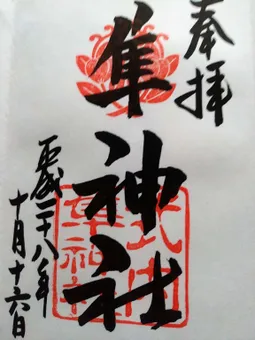 奉拝
隼神社
式内
隼神社
平成二十八年
十月十六日